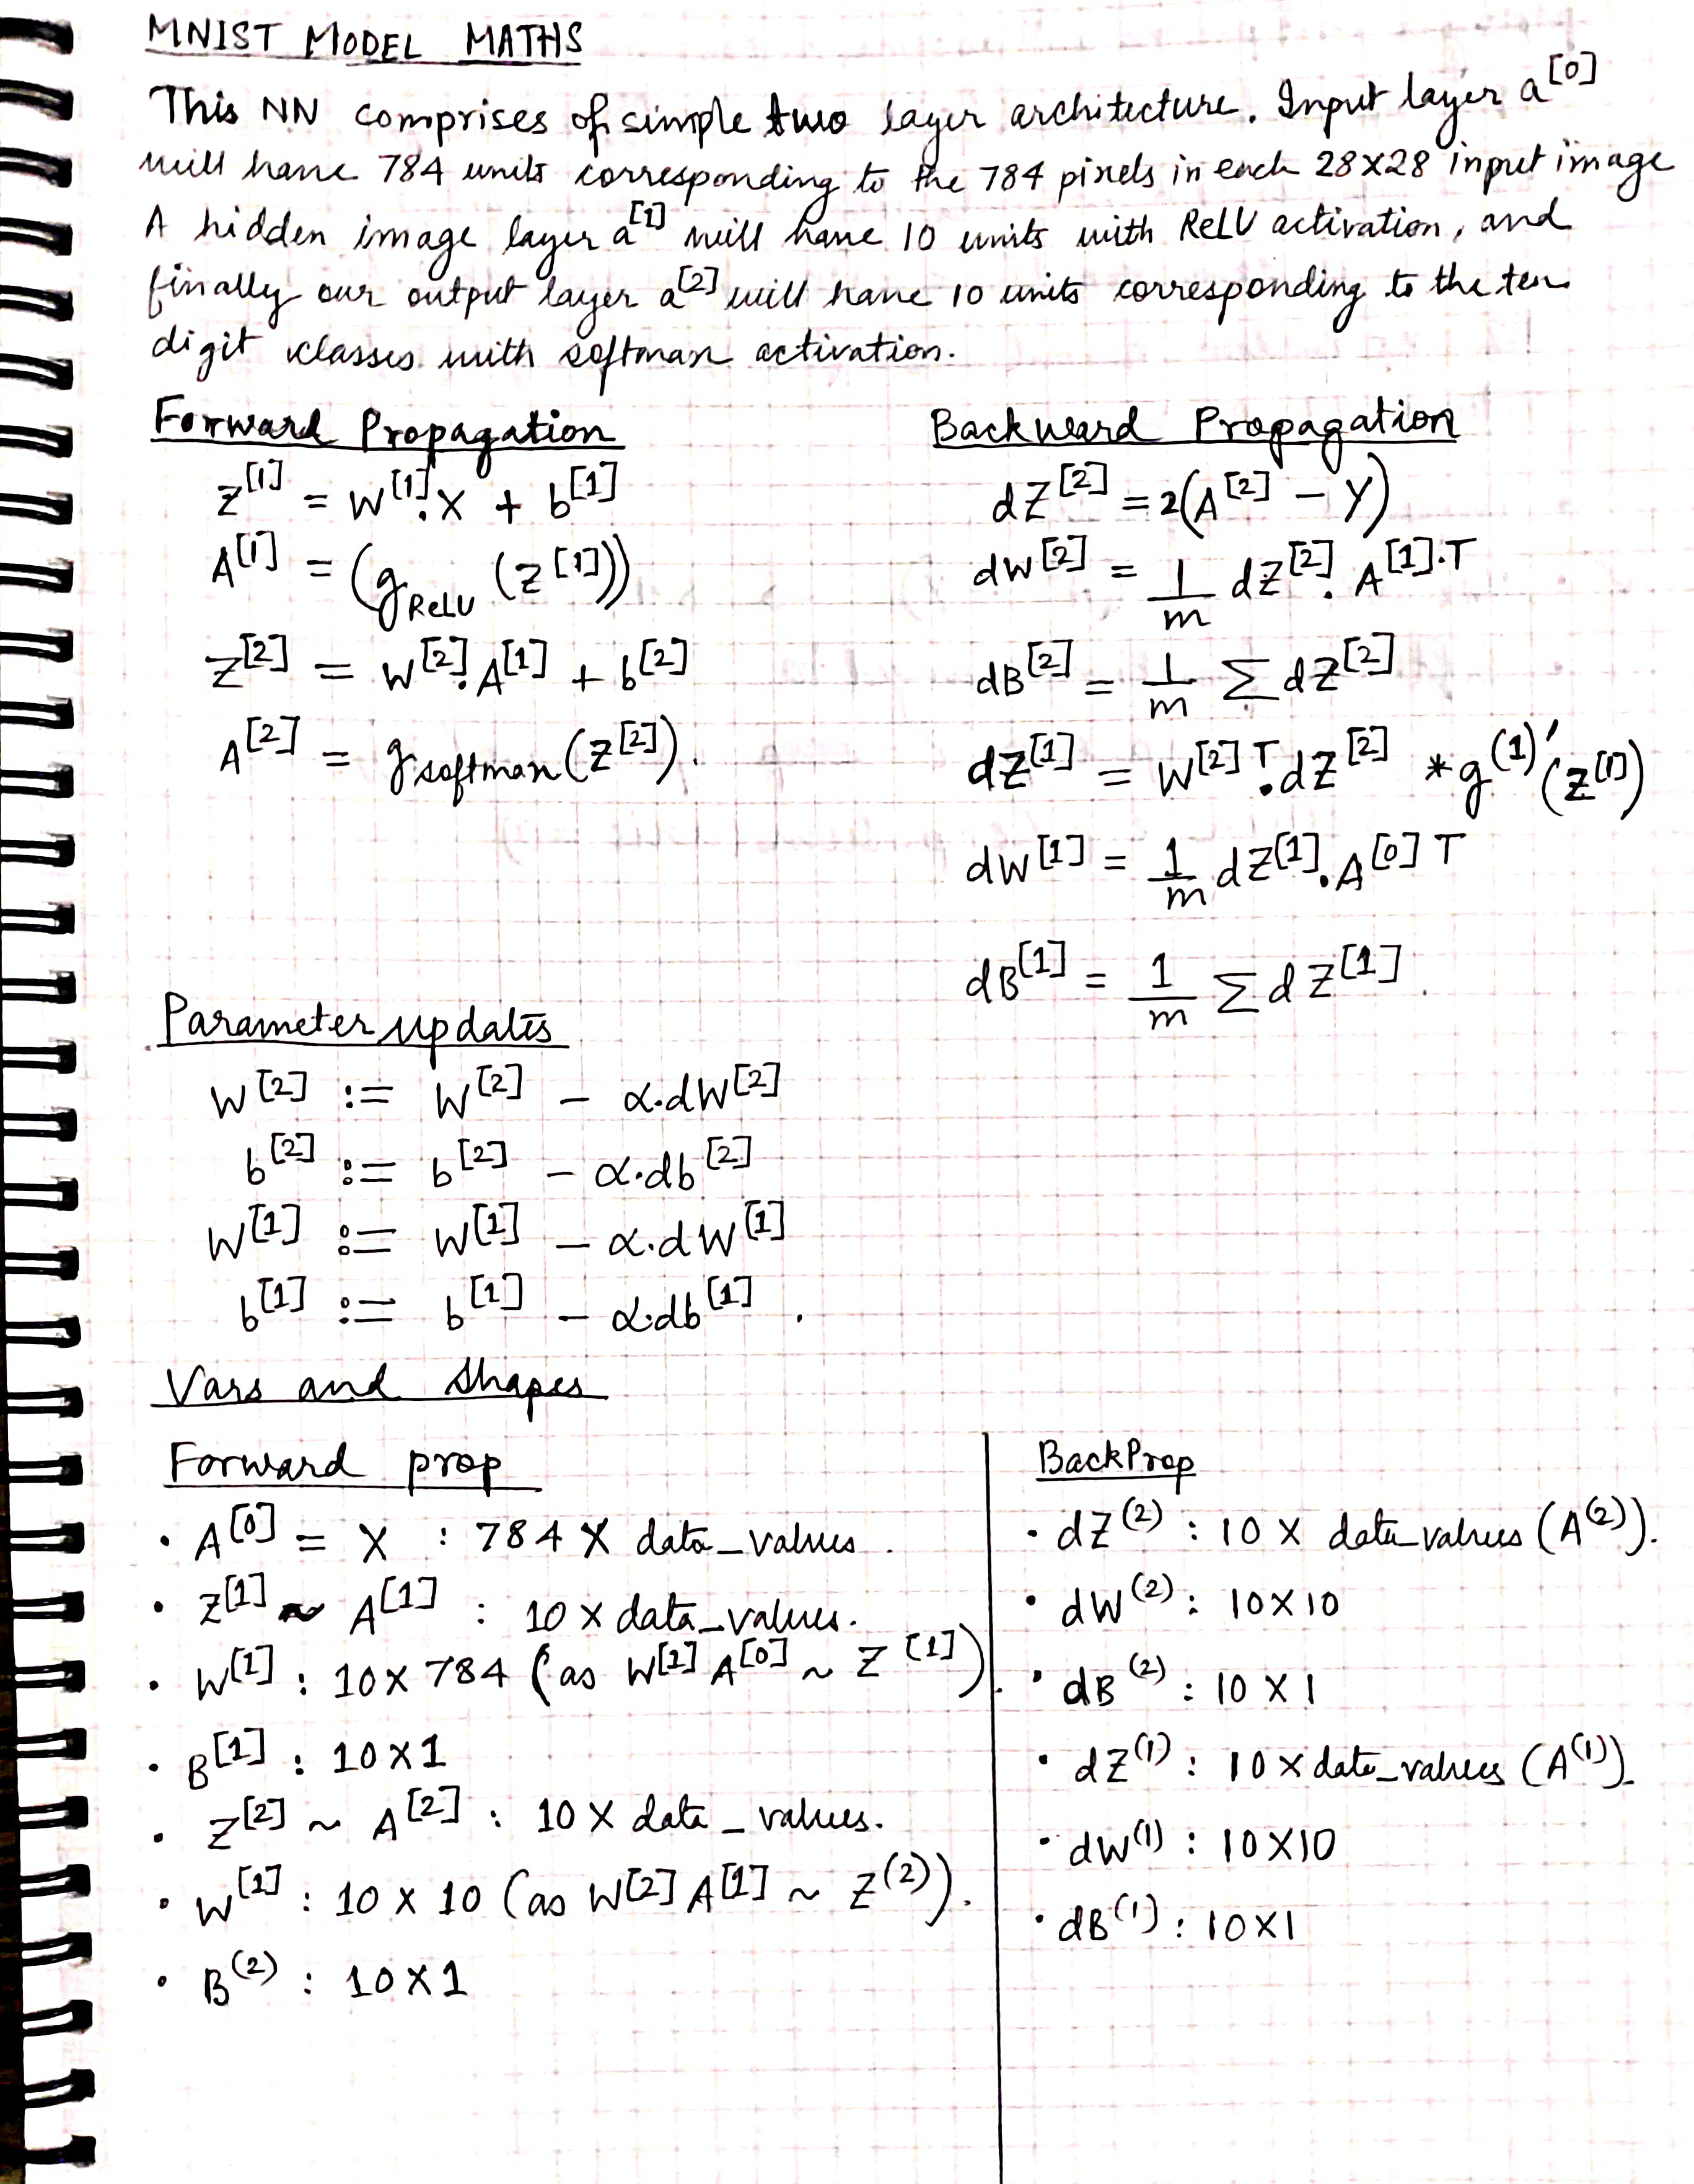 MNIST MODEL MATHS
This NN comprises of simple two layer architecture. Input layer a^[0]
will have 784 units corresponding to the 784 pixels in each 28x28 input image
A hidden image layer a^[1] will have 10 units with ReLU activation, and
finally our output layer a^[2] will have 10 units corresponding to the ten
digit classes with softmax activation.
Forward Propagation
Z^[1] = W^[1].X + b^[1]
A^[1] = (g_ReLU (Z^[1]))
Z^[2] = W^[2].A^[1] + b^[2]
A^[2] = g_softmax(Z^[2]).
Backward Propagation
dZ^[2] = 2(A^[2] - Y)
dW^[2] = 1/m dZ^[2].A^[1].T
dB^[2] = 1/m Σ dZ^[2]
dZ^[1] = W^[2]T.dZ^[2] * g^(1)'(Z^[1])
dW^[1] = 1/m dZ^[1].A^[0]T
dB^[1] = 1/m Σ dZ^[1].
Parameter updates
W^[2] := W^[2] - α.dW^[2]
b^[2] := b^[2] - α.db^[2]
W^[1] := W^[1] - α.dW^[1]
b^[1] := b^[1] - α.db^[1].
Vars and shapes
Forward prop
• A^[0] = X : 784 X data_values.
• Z^[1] ~ A^[1] : 10 x data_values.
• W^[1] : 10 x 784 (as W^[1] A^[0] ~ Z^[1]).
• B^[1] : 10 x 1
• Z^[2] ~ A^[2] : 10 X data_values.
• W^[1] : 10 x 10 (as W^[2] A^[1] ~ Z^(2)).
• B^(2) : 10 X 1
BackProp
• dZ^(2) : 10 X data_values (A^(2)).
• dW^(2) : 10X10
• dB^(2) : 10 X 1
• dZ^(1) : 10 X data_values (A^(1)).
• dW^(1) : 10X10
• dB^(1) : 10X1